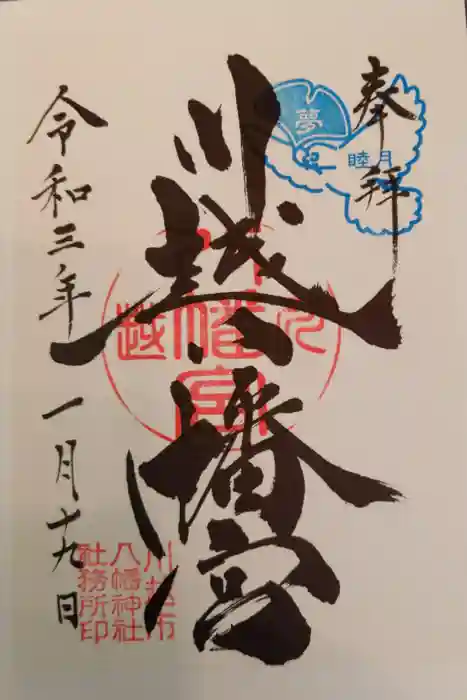 奉拝
夢
睦月
川越八幡宮
川越
八幡宮
令和三年 一月十九日
川越市
八幡神社
社務所印